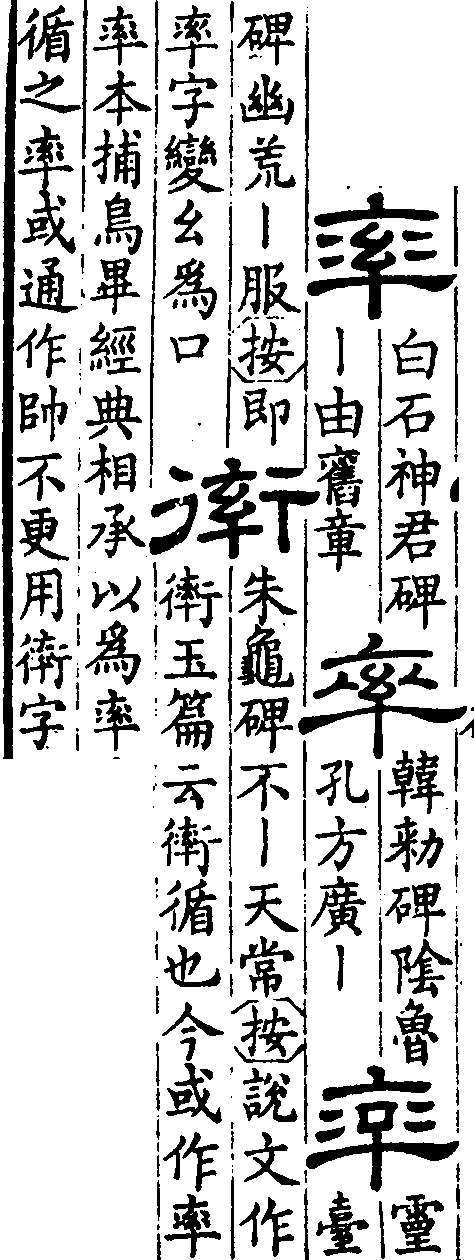 率
白石神君碑
丨由舊章
率
韓勑碑陰魯
孔方廣丨
率
靈
臺
碑幽荒丨服按即
率字變幺爲口
𧗿
朱龜碑不丨天常按說文作
𧗿玉篇云𧗿循也今或作率
率本捕鳥畢經典相承以爲率
循之率或通作帥不更用𧗿字